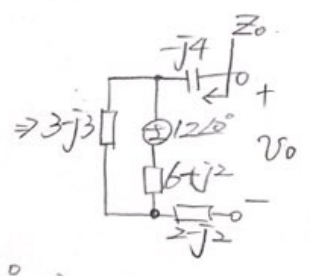 Z₀
-j4
+
⇒ 3-j3
±
12∠0°
V₀
6+j2
-
2-j2